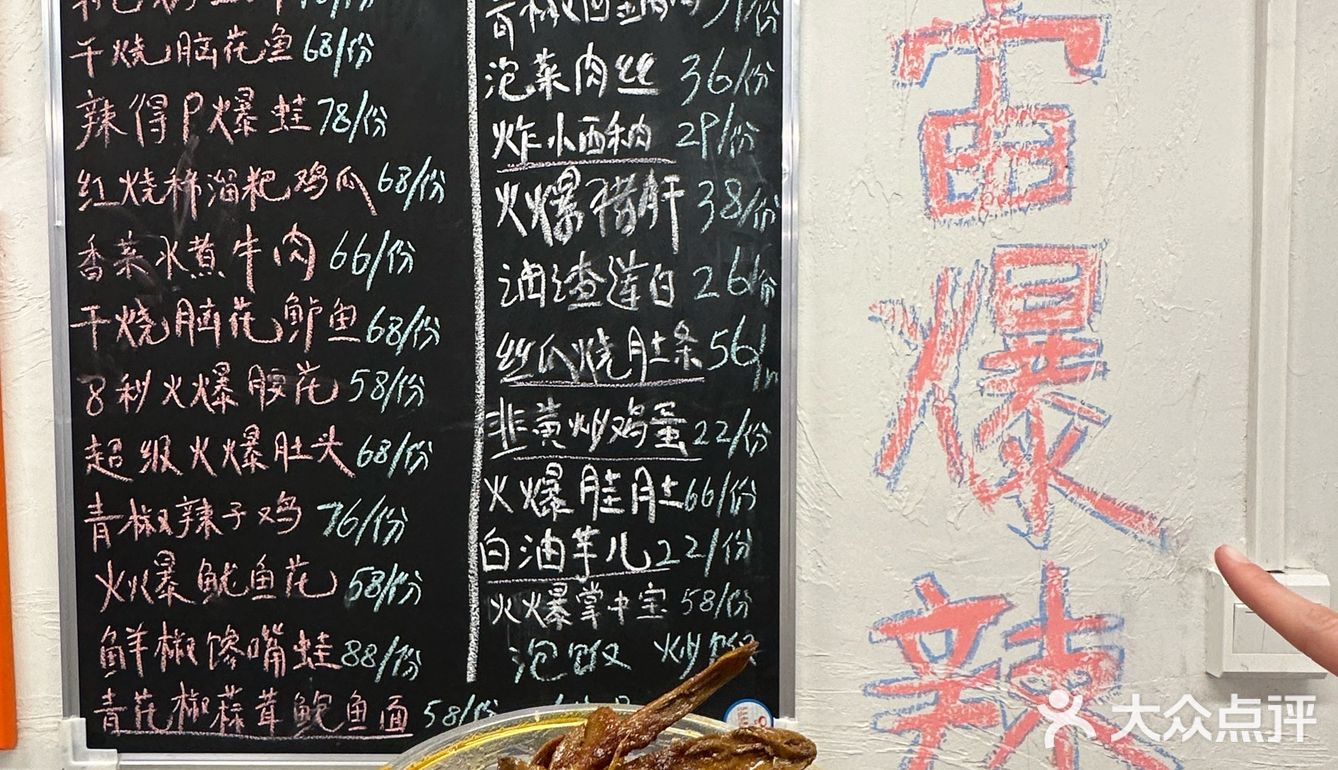 干烧脑花鱼 68/份
辣得P爆蛙 78/份
红烧稀溜粑鸡瓜 68/份
香菜水煮牛肉 66/份
干烧脑花鲈鱼 68/份
8秒火爆腰花 58/份
超级火爆肚头 68/份
青椒辣子鸡 76/份
火爆鱿鱼花 58/份
鲜椒馋嘴蛙 88/份
青花椒蒜茸鲍鱼面 58/份
泡菜肉丝 36/份
炸小酉禾肉 29/份
火爆猪肝 38/份
油渣莲白 26/份
丝瓜烧肚条 56/份
韭黄炒鸡蛋 22/份
火爆肚 66/份
白油芋儿 22/份
火爆掌中宝 58/份
泡饭 炒饭
雷爆辣
大众点评